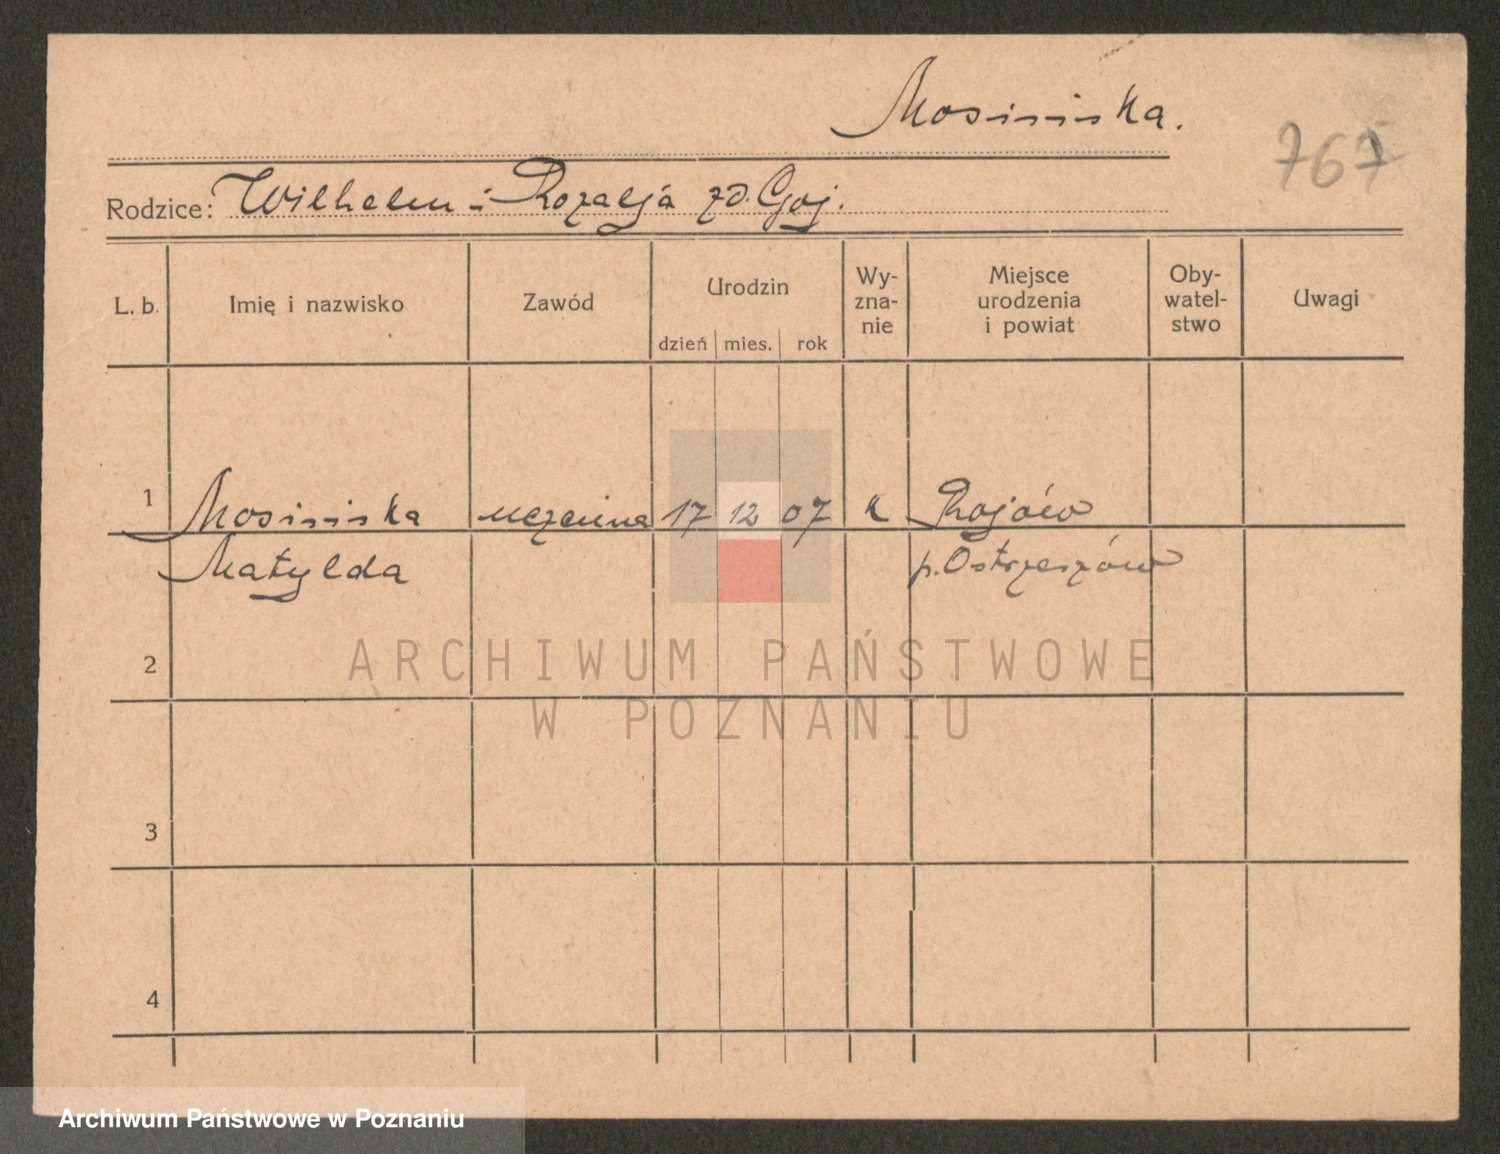 Mosińska.
767
Rodzice: Wilhelm i Rozalja zd. Goj.
L. b. Imię i nazwisko Zawód Urodzin Wy-zna-nie Miejsce urodzenia i powiat Oby-watel-stwo Uwagi
dzień mies. rok
1 Mosińska uczenina 17 12 07 k Rojów
Matylda p. Ostrzeszów
2
ARCHIWUM PAŃSTWOWE
W POZNANIU
3
4
Archiwum Państwowe w Poznaniu